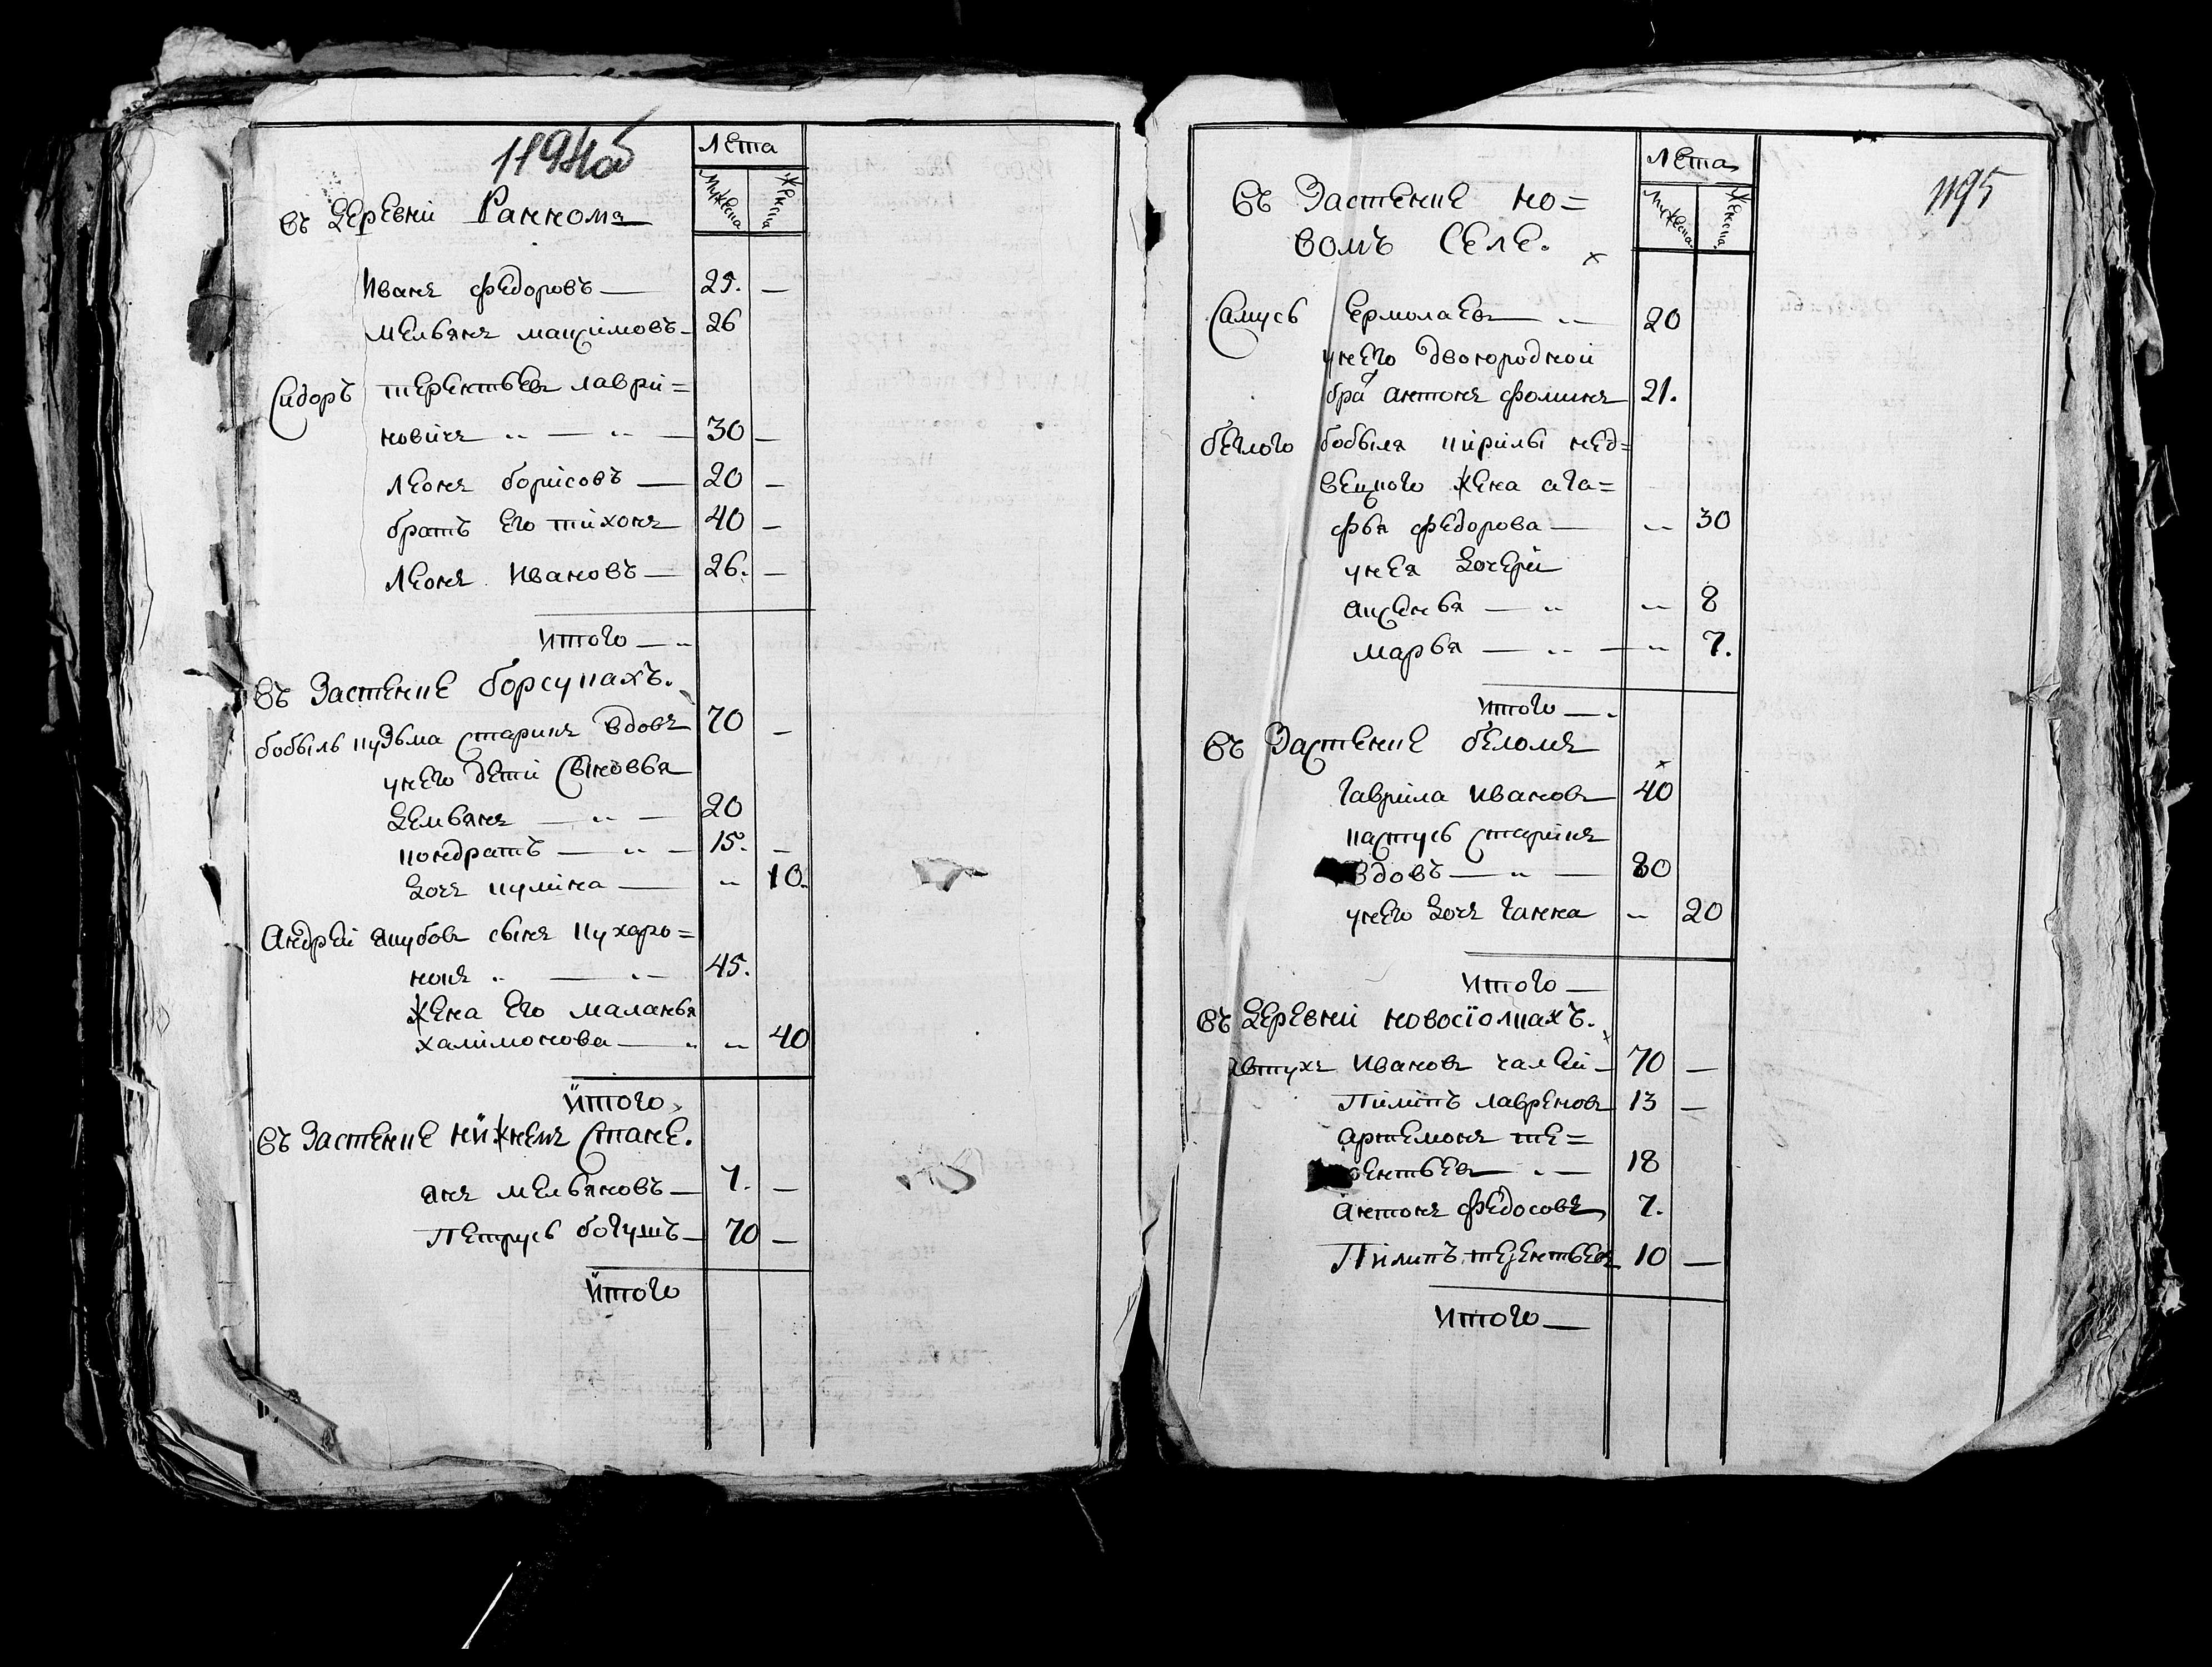 1194об
Лета
Мужеска
Женска
въ деревни Ранномъ
Иванъ федоровъ — 25. —
мельянъ максимовъ — 26
Сидоръ терентьевъ лаври=
новичъ — 30 —
леонъ борисовъ — 20 —
братъ его тихонъ — 40 —
леонъ Ивановъ — 26. —
итого —
въ Застенке борсукахъ.
бобыль кузьма старикъ вдовъ 70 —
унего дети сыновья
демьянъ — 20
кондратъ — 15. —
дочь кулина — 10.
Андрей якубовъ сынъ кухаро=
нокъ — 45.
жена его маланья
халимонова — 40
итого
въ Застенке нижнемъ Стане.
янъ мельяновъ — 7. —
петрусь богушъ — 70 —
итого
1195
Лета
Мужеска
Женска
въ Застенке но=
вомъ Селе.
Самусь ермолаевъ — 20
унего двоюродной
бра т антонъ фоминъ 21.
беглого бобыля кирилы нед=
вецкого жена ага=
фья федорова — 30
унея дочери
аксенья — 8
марья — 7.
итого —
въ Застенке беломъ
гаврила Ивановъ 40
пастухъ старикъ
вдовъ — 80
унего дочь ганна 20
итого —
въ деревни новосïолкахъ.
автухъ Ивановъ чалей — 70 —
пилипъ лавреновъ 13 —
артемонъ те=
рентьевъ — 18
антонъ федосовъ 7.
Пилипъ терентьевъ 10 —
итого —